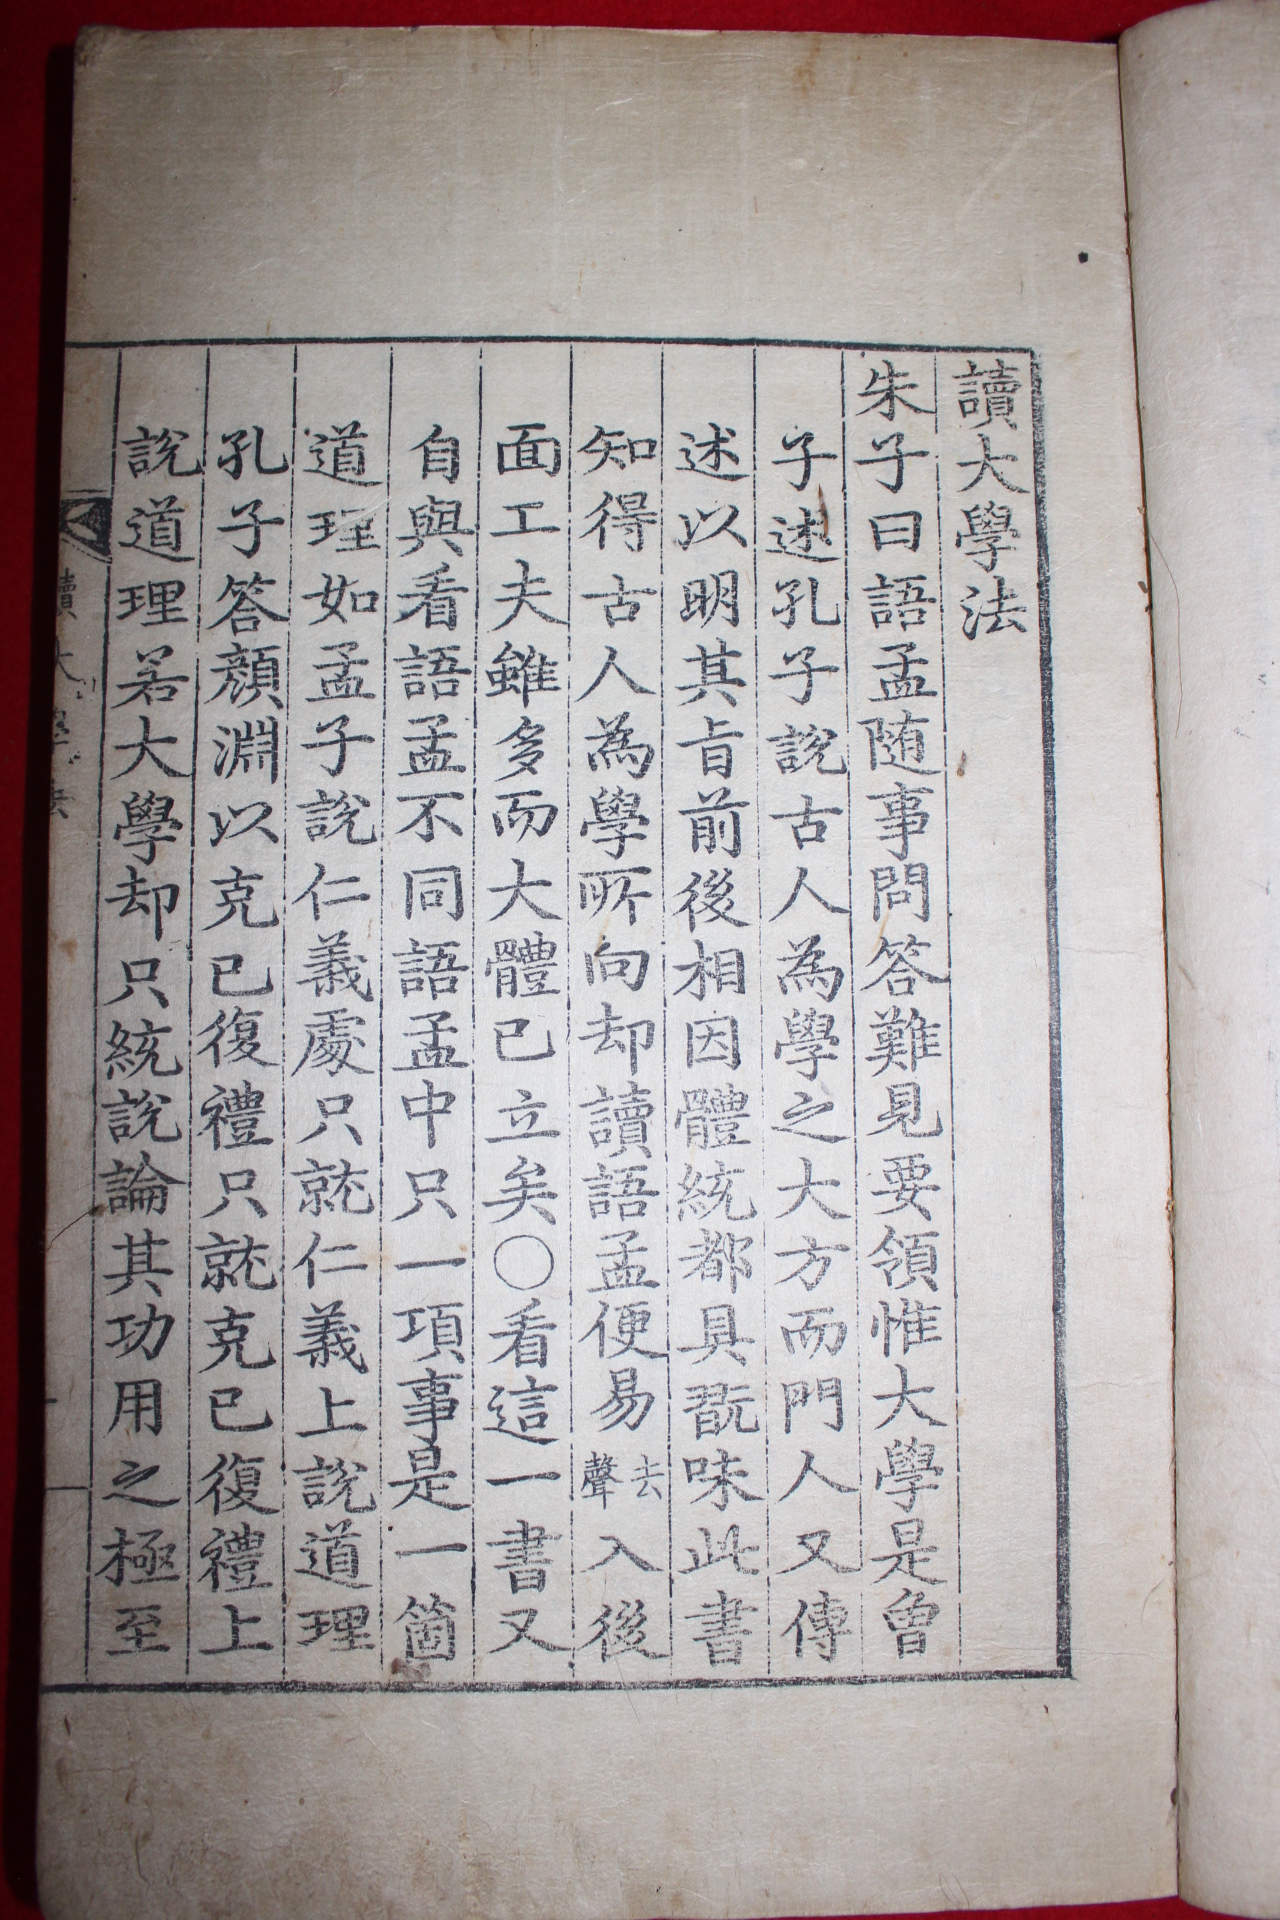 讀大學法
朱子曰語孟随事問答難見要領惟大學是曾
子述孔子說古人為學之大方而門人又傳
述以明其旨前後相因體統都具翫味此書
知得古人為學所向却讀語孟便易去聲入後
面工夫雖多而大體已立矣○看這一書又
自與看語孟不同語孟中只一項事是一箇
道理如孟子說仁義處只就仁義上說道理
孔子答顔淵以克已復禮只就克已復禮上
說道理若大學却只統說論其功用之極至
讀大學法